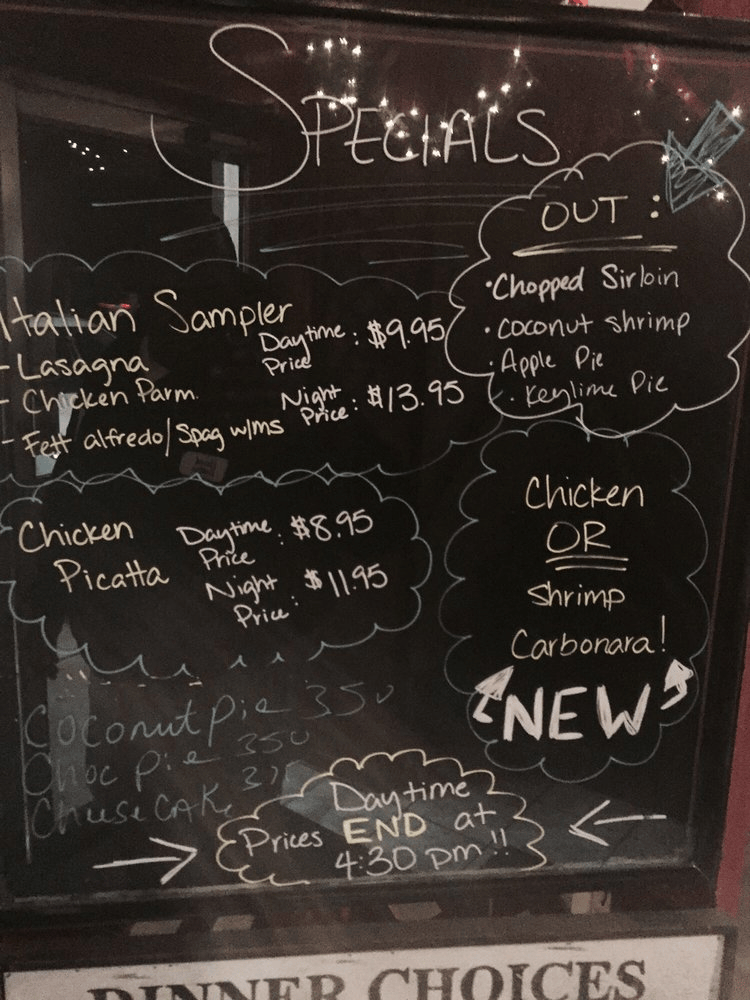 SPECIALS
OUT :
• Chopped Sirloin
• coconut shrimp
• Apple Pie
• Keylime Pie
Italian Sampler
- Lasagna
- Chicken Parm.
- Fett alfredo/Spag w/ms
Daytime Price : $9.95
Night Price : $13.95
Chicken
Picatta
Daytime Price : $8.95
Night Price : $11.95
Chicken
OR
Shrimp
Carbonara!
NEW
Coconut Pie 350
Choc Pie 350
Cheese CAKe
Daytime
Prices END at
4:30 pm!!
DINNER CHOICES